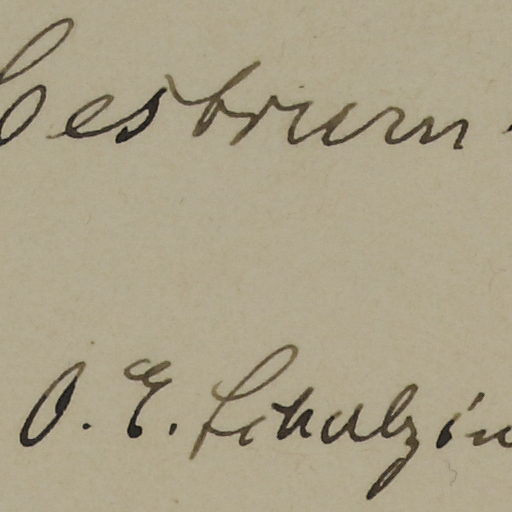 Cestrum
O. E. Schulz in